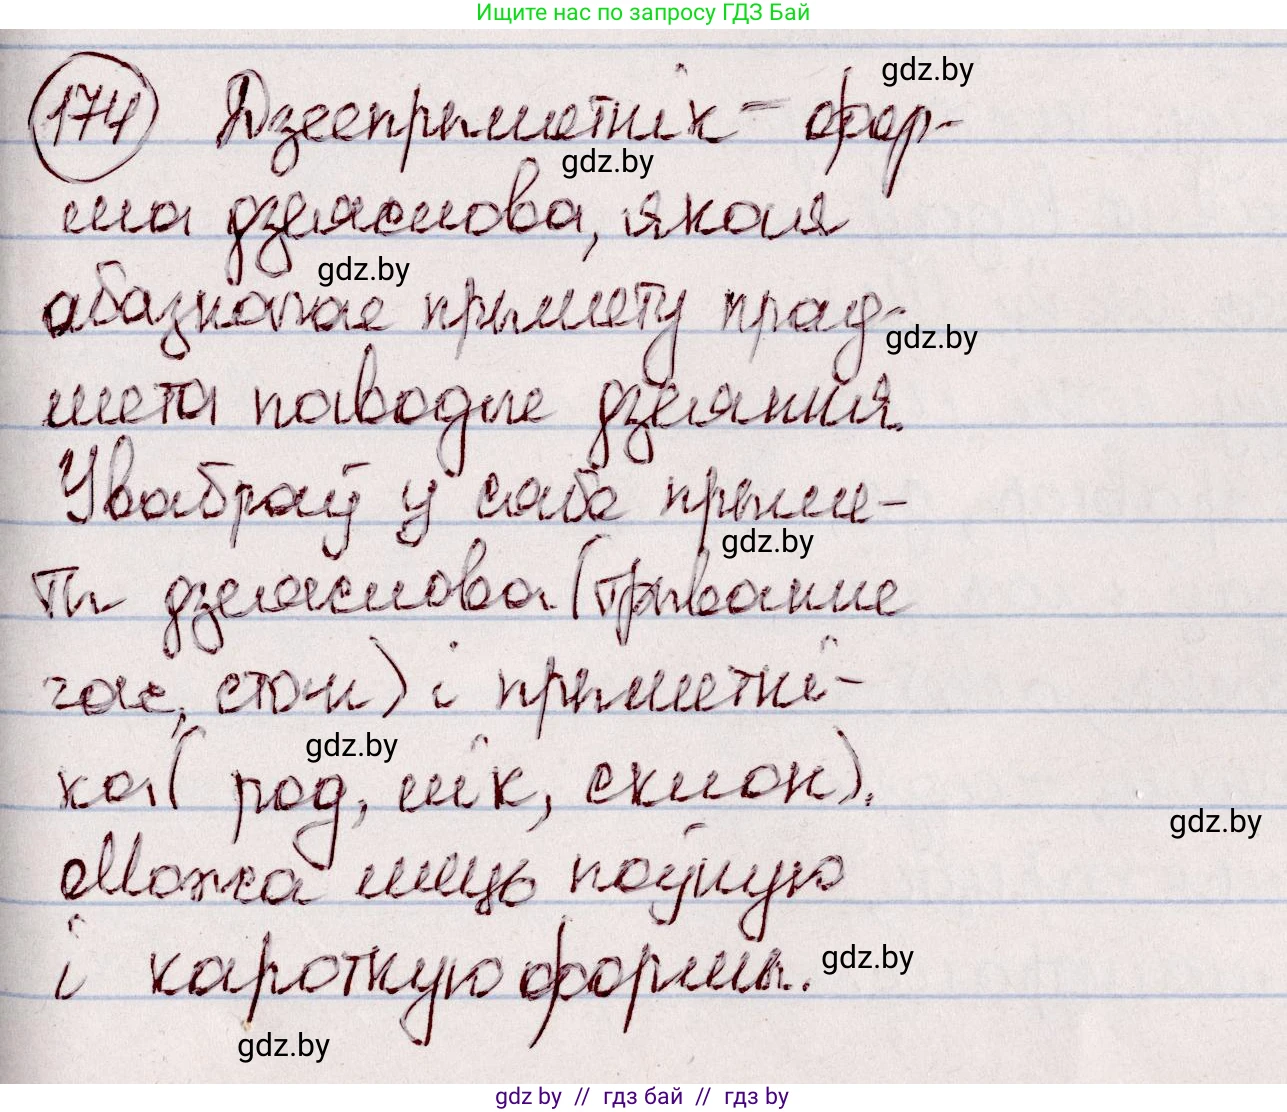 Ищите нас по запросу ГДЗ Бай
174 Дзеепрыметнік - фор-
gdz.by
gdz.by
ма дзеяслова, якая
gdz.by
абазначае прымету прад-
gdz.by
мета паводле дзеяння.
Увабраў у сабе прыме-
gdz.by
ты дзеяслова (трыванне
час, стан) і прыметні-
gdz.by
ка( род, лік, склон).
gdz.by
Можа мець поўную
і кароткую формы.
gdz.by
gdz.by
gdz by // гдз бай // гдз by